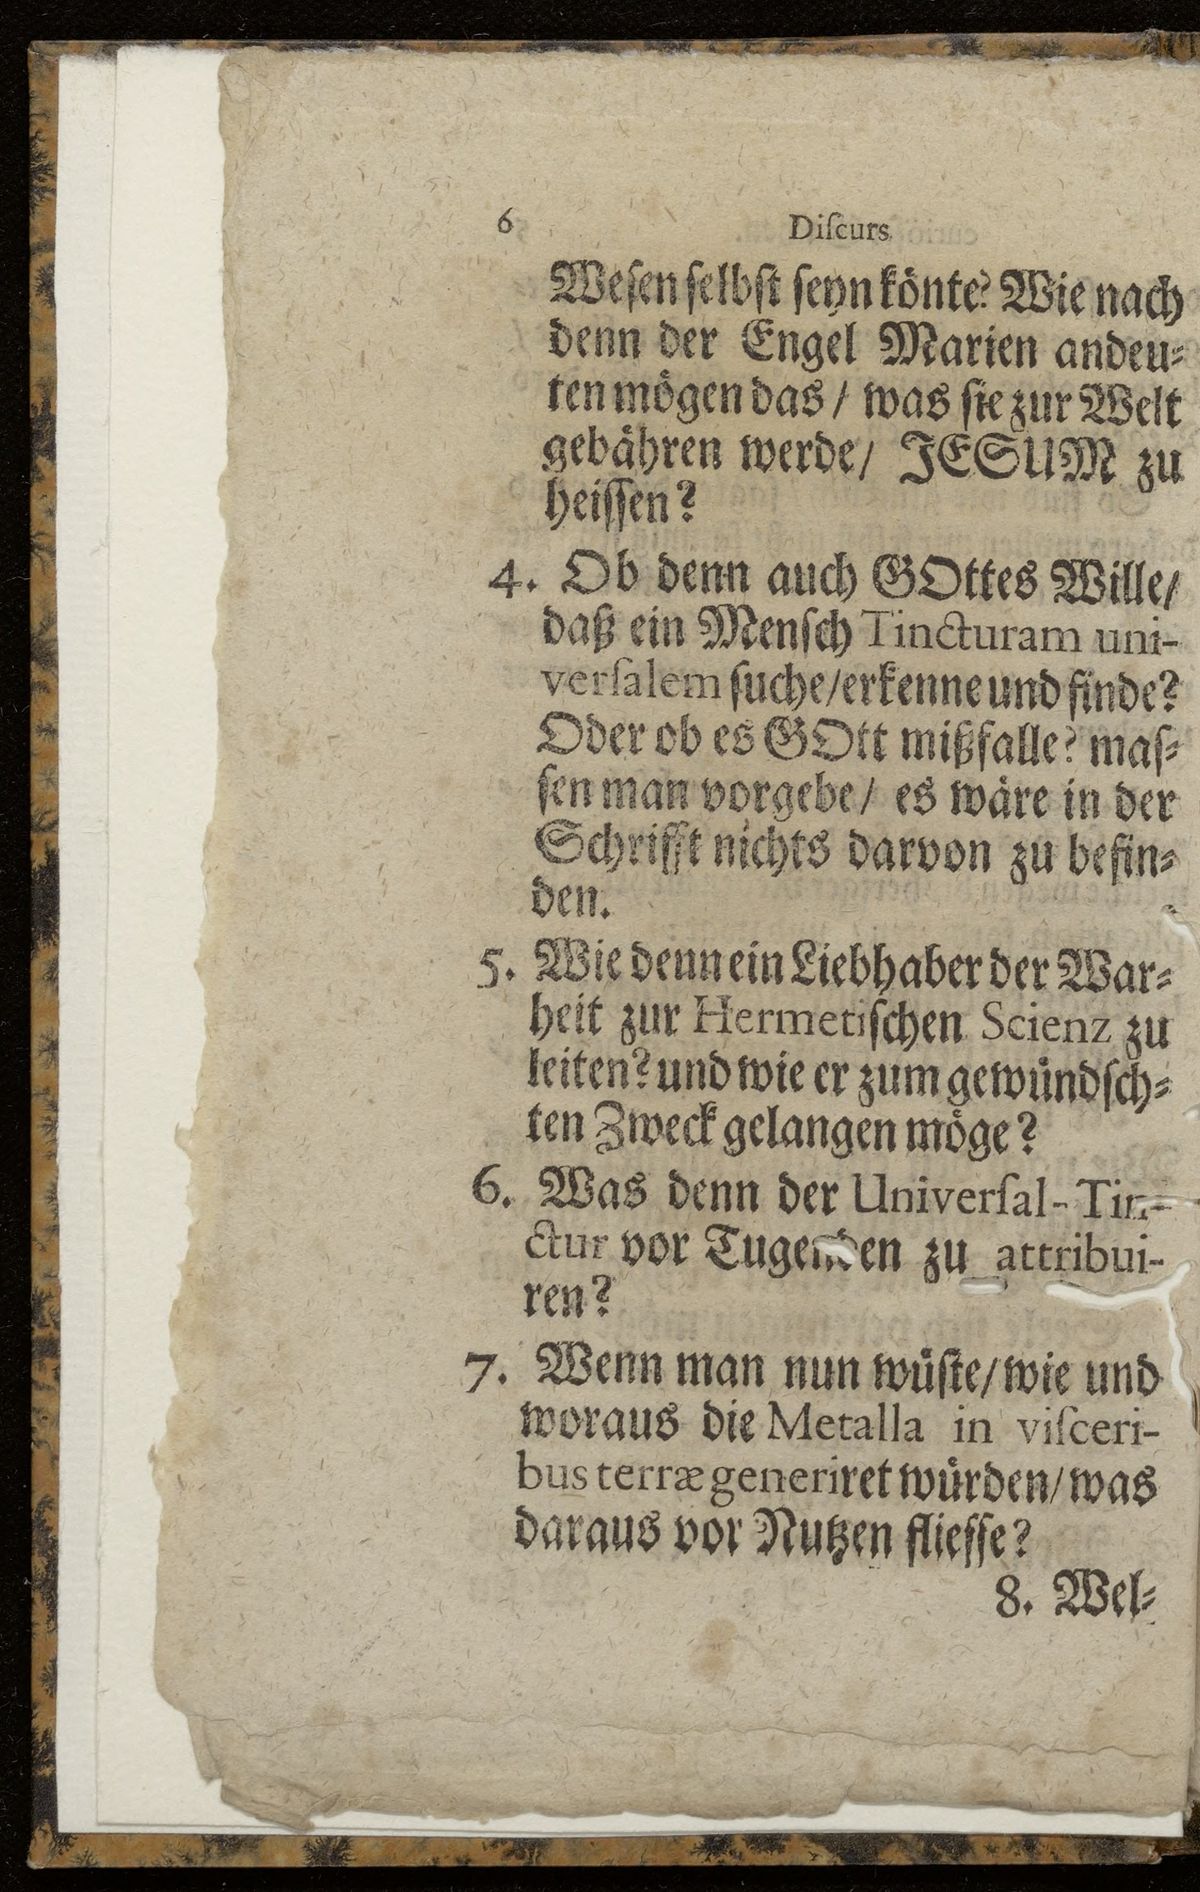 6 Diſcurs
Weſen ſelbſt ſeyn könte? Wie nach
denn der Engel Marien andeu-
ten mögen das / was ſie zur Welt
gebähren werde / JESUM zu
heiſſen?
4. Ob denn auch GOttes Wille /
daß ein Menſch Tincturam uni-
verſalem ſuche / erkenne und finde?
Oder ob es GOtt mißfalle? maſ-
ſen man vorgebe / es wäre in der
Schrifft nichts darvon zu befin-
den.
5. Wie denn ein Liebhaber der War-
heit zur Hermetiſchen Scienz zu
leiten? und wie er zum gewündſch-
ten Zweck gelangen möge?
6. Was denn der Univerſal-Tin-
ctur vor Tugenden zu attribui-
ren?
7. Wenn man nun wüſte / wie und
woraus die Metalla in viſceri-
bus terræ generiret würden / was
daraus vor Nutzen flieſſe?
8. Wel-